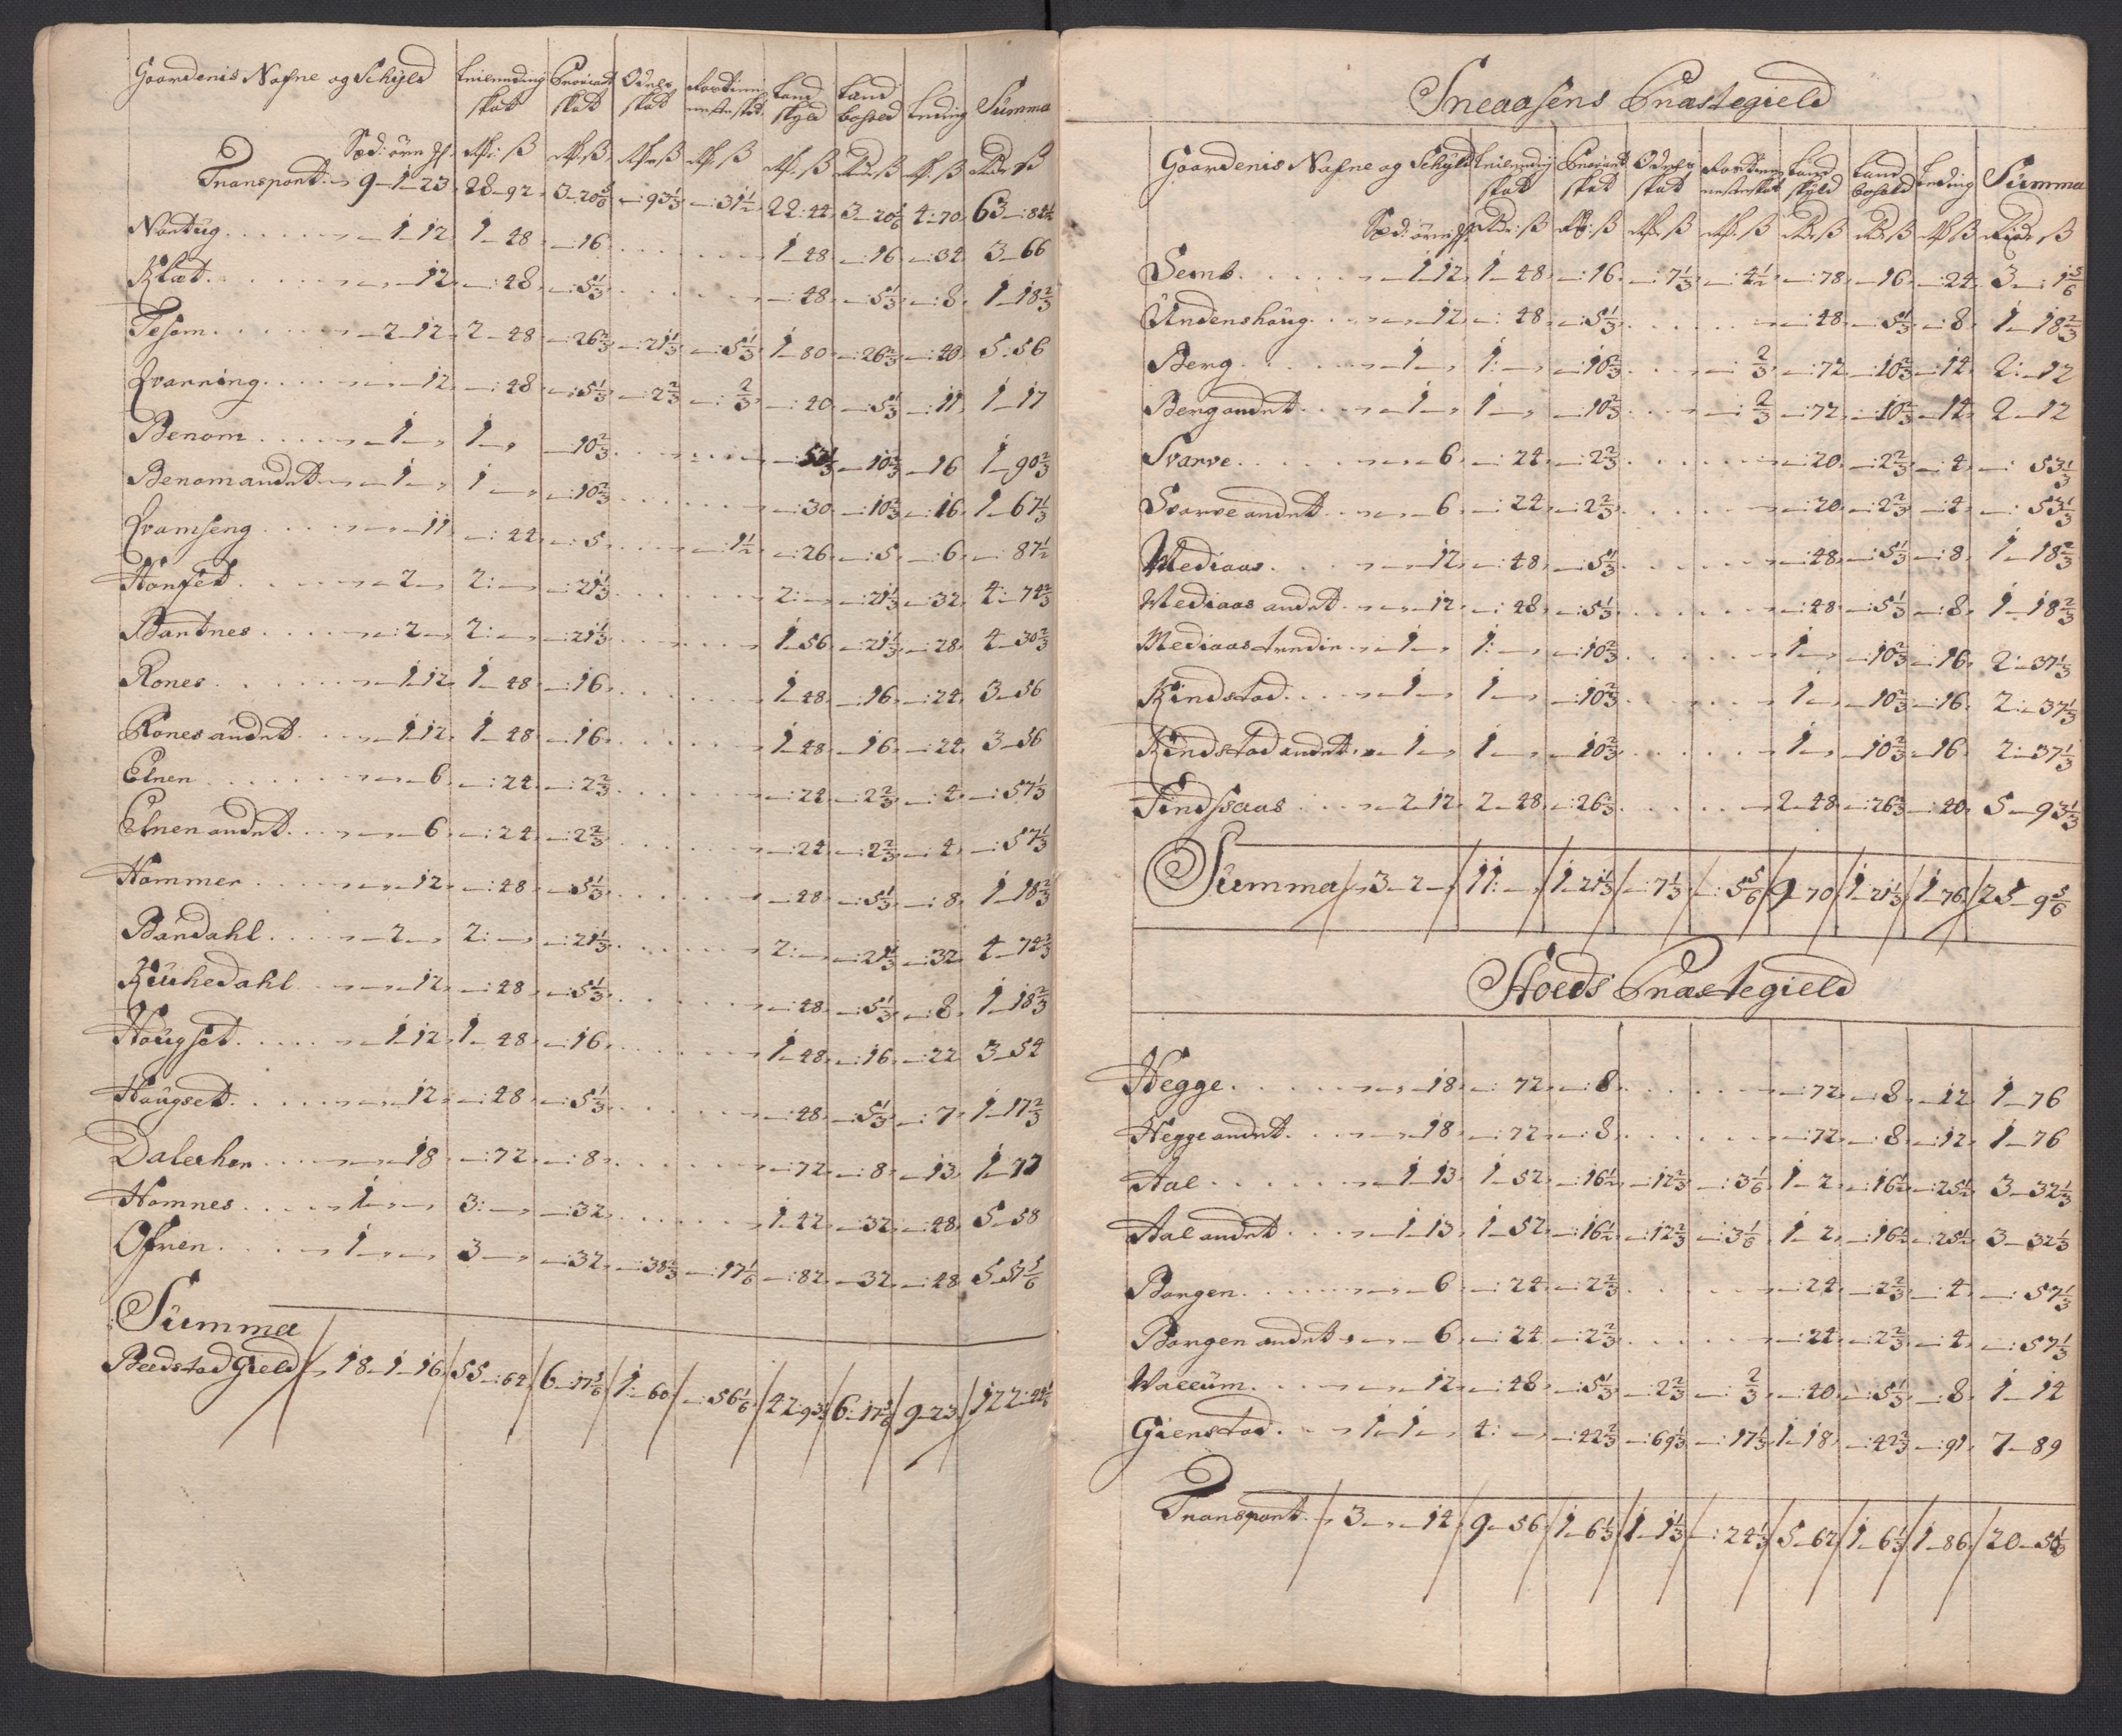 Gaardenis Nafne og Schyld Leilending skat Proviant skat Odels skat Land skyld Land bohold Leding Summa
Spd: ören
Transport. 9-1-23 28-92 3-20 5/6 -:93 1/3 -:31 1/2 22:44 3-20 5/6 4:70 63-:84 1/2
Nortug 1-12 1-48 -:16 1-48 -:16 -:34 3-66
Klæt 12 -:48 -:5 1/3 -:48 -:5 1/3 -:8 1-18 2/3
Tesom 2-12 2-48 -:26 2/3 -:21 1/3 -:5 1/3 1-80 -:26 2/3 -:40 5:56
Qvarning 12 -:48 -:5 1/3 -:2 2/3 -: 2/3 -:40 -:5 1/3 -:11 1-17
Benom 1- 1- -10 2/3 -:53 1/3 -:10 2/3 -16 1-90 2/3
Benom andet 1- 1- -:10 2/3 -:30 -:10 2/3 -:16 1-67 1/3
Qvamseng 11 -:44 -:5 -:1 1/2 -:26 -:5 -:6 -:87 1/2
Honset 2- 2:- -:21 1/3 2:- -:21 1/3 -:32 4:74 2/3
Bartnes -:2- 2:- -:21 1/3 1-56 -:21 1/3 -:28 4-30 2/3
Rones 1-12 1-48 -:16 1-48 -:16 -:24 3-56
Rones andet 1-12 1-48 -:16 1-48 -:16 -:24 3-56
Elnen 6 -:24 -:2 2/3 -:24 -:2 2/3 -:4 -:57 1/3
Elnen andet 6 -:24 -:2 2/3 -:24 -:2 2/3 -:4 -:57 1/3
Hammer 12 -:48 -:5 1/3 -:48 -:5 1/3 -:8 1-18 2/3
Bardahl 2- 2:- -:21 1/3 2:- -:21 1/3 -:32 4-74 2/3
Kirkedahl 12 -:48 -:5 1/3 -:48 -:5 1/3 -:8 1-18 2/3
Haugset 1-12 1-48 -:16 1-48 -:16 -:22 3-54
Haugset 12 -:48 -:5 1/3 -:48 -:5 1/3 -:7 1-17 2/3
Dalecher 18 -:72 -:8 -:72 -:8 -:13 1-77
Homnes 1- 3:- -:32 1-42 -:32 -:48 5-58
Ofren 1- 3- -:32 -:38 2/3 -:17 1/6 -:82 -32 -:48 5-57 5/6
Summa
Beedstad Gield 18-1-16 55-:64 6-17 5/6 1:-60 -:56 1/6 42:93 6:-17 5/6 9-23 122:44
Sneaasens Præstegield
Gaardenis Nafne og Schyld Leilending skat Proviant skat Odels skat Land skyld Land bohold Leding Summa
Spd: ören
Semb 1-12 1-48 -:16 -:7 1/3 -:4 1/2 -:78 -16 -:24 3-:1 5/6
Undershaug 12 -:48 -:5 1/3 -:48 -:5 1/3 -:8 1-18 2/3
Berg 1- 1:- -:10 2/3 -: 2/3 -:72 -:10 2/3 -:14 2:-12
Berg andet 1- 1- -:10 2/3 -: 2/3 -:72 -:10 2/3 -:14 2-12
Svarve 6 -:24 -:2 2/3 -:20 -:2 2/3 -:4 -:53 1/3
Svarve andet 6 -:24 -:2 2/3 -:20 -:2 2/3 -:4 -:53 1/3
Mediaas 12 -:48 -:5 1/3 -:48 -:5 1/3 -:8 1-18 2/3
Mediaas andet 12 -:48 -:5 1/3 -:48 -:5 1/3 -:8 1-18 2/3
Mediaas tredie 1- 1:- -:10 2/3 1- -:10 2/3 -:16 2:-37 1/3
Kindstad 1- 1- -:10 2/3 1- -10 2/3 -:16 2:-37 1/3
Kindstad andet 1- 1- -:10 2/3 1- -10 2/3 -16 2:-37 1/3
Findsaas 2-12 2-48 -:26 2/3 2-48 -:26 2/3 -:40 5-93 1/3
Summa 3-2- 11:- 1-21 1/3 -:7 1/3 -:5 5/6 9-70 1-21 1/3 1-76 25-9 5/6
Stoeds Præstegield
Hegge 18 -:72 -:8 -:72 -:8 -12 1-76
Hegge andet 18 -:72 -:8 -:72 -:8 -:12 1-76
Aal 1-13 1-52 -:16 1/2 -:12 2/3 -:3 1/6 1-2 -:16 1/2 -:25 1/2 3-32 1/3
Aal andet 1-13 1-52 -:16 1/2 -:12 2/3 -:3 1/6 1-2 -:16 1/2 -:25 1/2 3-32 1/3
Borgen 6 -:24 -:2 2/3 -:24 -:2 2/3 -:4 -:57 1/3
Borgen andet 6 -:24 -:2 2/3 -:24 -:2 2/3 -:4 -:57 1/3
Wallum 12 -:48 -:5 1/3 -:2 2/3 -: 2/3 -:40 -:5 1/3 -:8 1-14
Gienstad 1-1- 4:- -:42 2/3 -:69 1/3 -:17 1/3 1-18 -:42 2/3 -:91 7-89
Transport 3-14 9-56 1-6 1/3 1-1 1/3 -:24 1/3 5-62 1-6 1/3 1-86 20-50 1/3